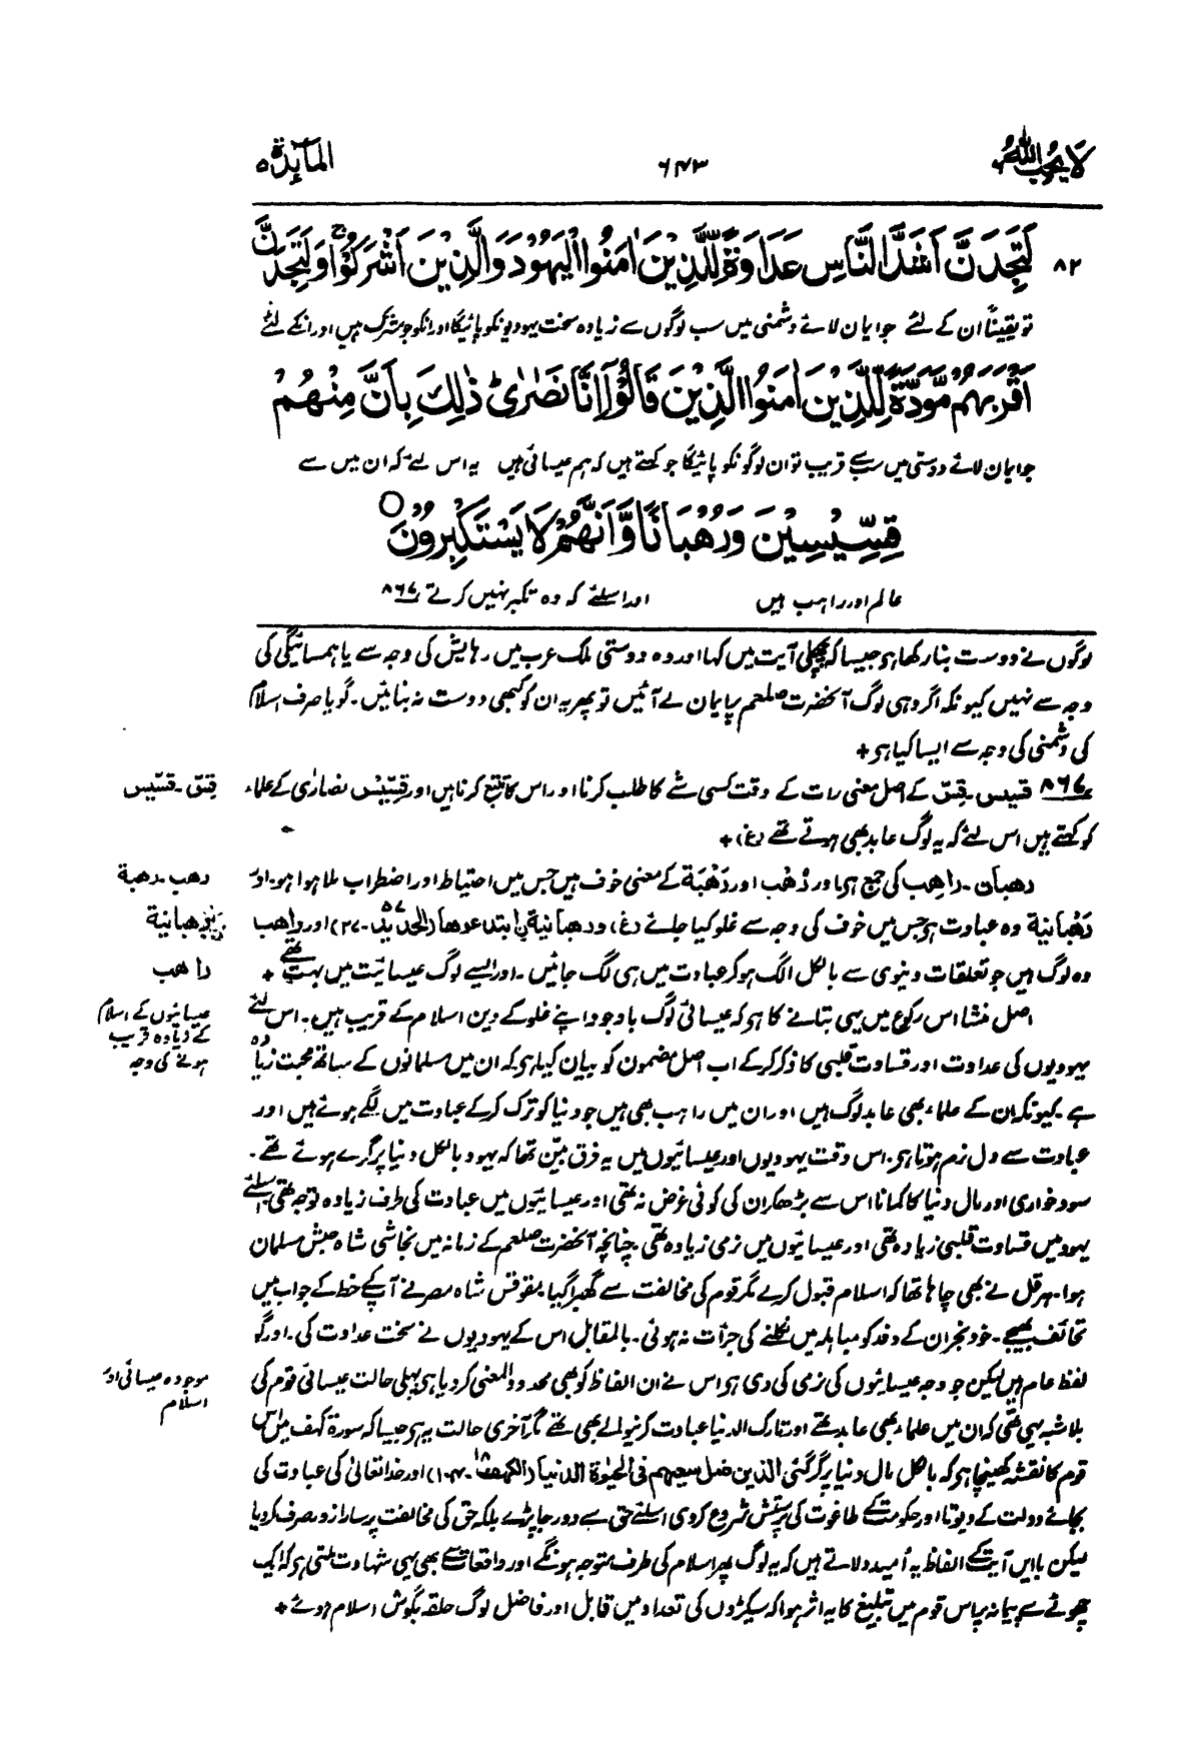 لَا يُحِبُّ اللّٰهُ
۶۴۳
المآئدۃ ۵
۸۲ لَتَجِدَنَّ اَشَدَّ النَّاسِ عَدَاوَةً لِّلَّذِيْنَ اٰمَنُوا الْيَهُوْدَ وَالَّذِيْنَ اَشْرَكُوْا ۚ وَلَتَجِدَنَّ
تو یقیناً ان کے لئے جو ایمان لائے دشمنی میں سب لوگوں سے زیادہ سخت یہودیونکو پائیگا اور انکو جو مشرک ہیں اور انکے لئے
اَقْرَبَهُمْ مَّوَدَّةً لِّلَّذِيْنَ اٰمَنُوا الَّذِيْنَ قَالُوْٓا اِنَّا نَصٰرٰى ؕ ذٰلِكَ بِاَنَّ مِنْهُمْ
جو ایمان لائے دوستی میں سب سے قریب تو ان لوگونکو پائیگا جو کہتے ہیں کہ ہم عیسائی ہیں یہ اس لئے کہ ان میں سے
قِسِّيْسِيْنَ وَرُهْبَانًا وَّاَنَّهُمْ لَا يَسْتَكْبِرُوْنَ ○
عالم اور راہب ہیں اور اسلئے کہ وہ تکبر نہیں کرتے ۸۶۷
لوگوں نے دوست بنا رکھا ہو جیسا کہ پچھلی آیت میں کہا اور وہ دوستی ملک عرب میں رہایش کی وجہ سے یا ہمسائیگی کی
وجہ سے نہیں کیونکہ اگر وہی لوگ آنحضرت صلعم پر ایمان لے آئیں تو پھر یہ ان کو کبھی دوست نہ بنائیں۔ گویا صرف اسلام
کی دشمنی کی وجہ سے ایسا کیا ہی +
۸۶۷ قسیس۔ قِسّ کے اصل معنی رات کے وقت کسی شے کا طلب کرنا اور اس کا تتبع کرنا ہیں اور قِسِّیْس نصارٰی کے علماء
قِسّ۔ قسّیس
کو کہتے ہیں اس لئے کہ یہ لوگ عابد بھی ہوتے تھے (غ) +
رھبان۔ راھب کی جمع ہی اور رُھْب اور رَھْبَة کے معنی خوف ہیں جس میں احتیاط اور اضطراب ملا ہوا ہو۔ اور
رھب۔ رھبة
رَھْبَانیة وہ عبادت ہو جس میں خوف کی وجہ سے غلو کیا جائے (غ) ورھبانیة ن ابتدعوھا (الحدید ۵۷۔ ۲۷) اور راھب
رھبانیة
وہ لوگ ہیں جو تعلقات دنیوی سے بالکل الگ ہو کر عبادت میں ہی لگ جائیں۔ اور ایسے لوگ عیسائیت میں بہت تھے +
راھب
اصل منشا اس رکوع میں یہی بتانے کا ہو کہ عیسائی لوگ باوجود اپنے غلو کے دین اسلام کے قریب ہیں۔ اس لئے
عیسائیوں کے اسلام
کے زیادہ قریب
ہونے کی وجہ
یہودیوں کی عداوت اور قساوت قلبی کا ذکر کرکے اب اصل مضمون کو بیان کیا ہی کہ ان میں مسلمانوں کے ساتھ محبت زیادہ
ہے۔ کیونکہ ان کے علماء بھی عابد لوگ ہیں اور ان میں راہب بھی ہیں جو دنیا کو ترک کرکے عبادت میں لگے ہوئے ہیں اور
عبادت سے دل نرم ہوتا ہی۔ اس وقت یہودیوں اور عیسائیوں میں یہ فرق بیّن تھا کہ یہود بالکل دنیا پر گرے ہوئے تھے۔
سود خواری اور مال دنیا کا کمانا اس سے بڑھکر ان کی کوئی غرض نہ تھی اور عیسائیوں میں عبادت کی طرف زیادہ توجہ تھی اسلئے
یہود میں قساوت قلبی زیادہ تھی اور عیسائیوں میں نرمی زیادہ تھی چنانچہ آنحضرت صلعم کے زمانہ میں نجاشی شاہ حبش مسلمان
ہوا۔ ہرقل نے بھی چاہا تھا کہ اسلام قبول کرے مگر قوم کی مخالفت سے گھبرا گیا۔ مقوقش شاہ مصر نے آپ کے خط کے جواب میں
تحائف بھیجے۔ خود نجران کے وفد کو مباہلہ میں نکلنے کی جرأت نہ ہوئی۔ بالمقابل اس کے یہودیوں نے سخت عداوت کی۔ اور گو
لفظ عام ہیں لیکن جو وجہ عیسائیوں کی نرمی کی دی ہو اس نے ان الفاظ کو بھی محدود المعنی کر دیا ہی پہلی حالت عیسائی قوم کی
موجودہ عیسائی اور
اسلام
بلاشبہ یہی تھی کہ ان میں علماء بھی عابد تھے اور تارک الدنیا عبادت کرنیوالے بھی تھے مگر آخری حالت یہ ہو جیسا کہ سورۃ کہف میں اس
قوم کا نقشہ کھینچا ہو کہ بالکل مال دنیا پر گر گئی الذین ضل سعیھم فی الحیوٰة الدنیا (الکھف ۱۸۔ ۱۰۴) اور خدا تعالیٰ کی عبادت کی
بجائے دولت کے دیوتا اور حکومت کے طاغوت کی پرستش شروع کر دی اسلئے حق سے دور جا پڑے بلکہ حق کی مخالفت پر سارا زور صرف کر دیا
لیکن بایں آیت کے الفاظ یہ اُمید دلاتے ہیں کہ یہ لوگ پھر اسلام کی طرف متوجہ ہونگے اور واقعات سے بھی یہی شہادت ملتی ہو کہ ایک
چھوٹے سے پیمانہ پر اس قوم میں تبلیغ کا یہ اثر ہوا کہ سیکڑوں کی تعداد میں قابل اور فاضل لوگ حلقہ بگوش اسلام ہوئے +